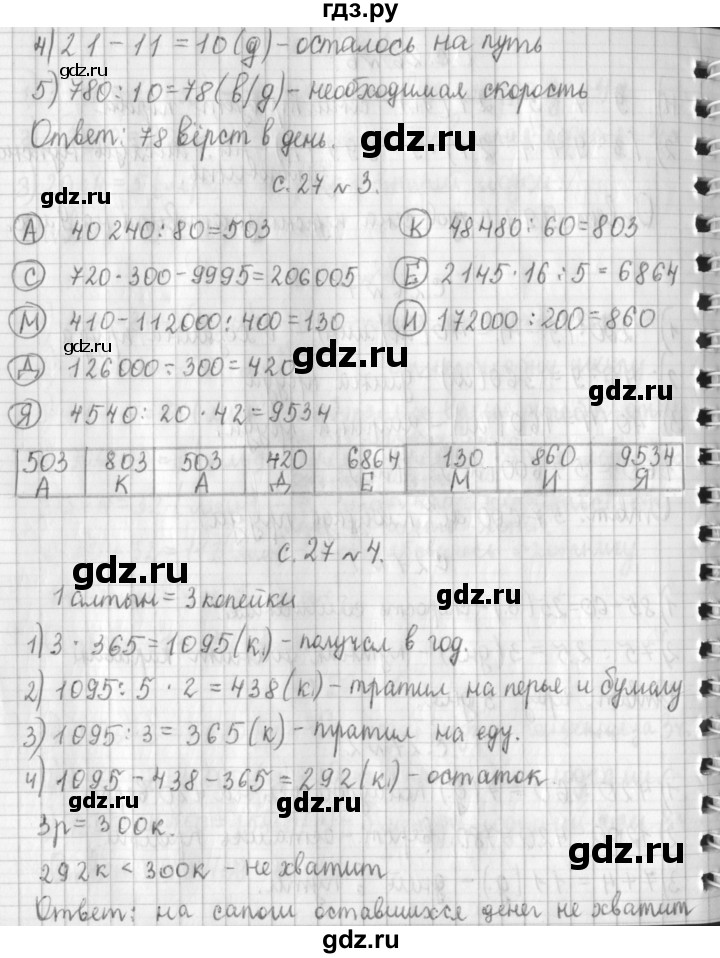 гдз.ру
4) 21 - 11 = 10 (д) - осталось на путь
5) 780 : 10 = 78 (в/д) - необходимая скорость
Ответ: 78 вёрст в день.
gdz.ru
gdz.ru
с. 27 № 3.
gdz.ru
А 40 240 : 80 = 503
К 48480 : 60 = 803
С 720 · 300 - 9995 = 206005
Е 2145 · 16 : 5 = 6864
gdz.ru
М 410 - 112000 : 400 = 130
И 172000 : 200 = 860
gdz.ru
gdz.ru
Д 126000 : 300 = 420
Я 4540 : 20 · 42 = 9534
503 803 503 420 6864 130 860 9534
А К А Д Е М И Я
с. 27 № 4.
gdz.ru
gdz.ru
1 алтын = 3 копейки
1) 3 · 365 = 1095 (к.) - получал в год.
2) 1095 : 5 · 2 = 438 (к.) - тратил на перье и бумагу
3) 1095 : 3 = 365 (к) - тратил на еду.
gdz.ru
4) 1095 - 438 - 365 = 292 (к.) - остаток.
3р = 300к.
gdz.ru
gdz.ru
292к < 300к - не хватит
Ответ: на сапоги оставшихся денег не хватит
gdz.ru